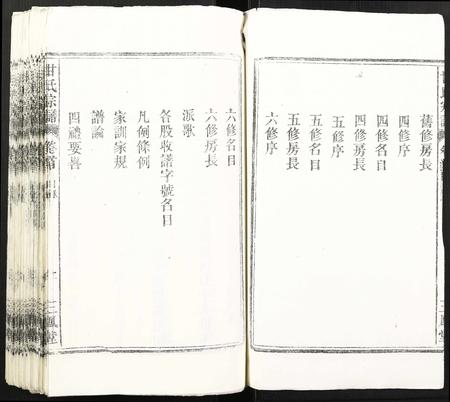 舊修房長
四修序
四修名目
四修房長
五修序
五修名目
五修房長
六修序
六修名目
六修房長
派歌
各股收譜字號名目
凡例條例
家訓家規
譜論
四禮要善
甘氏宗譜 卷首 目錄
三鳳堂